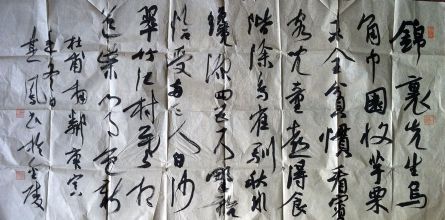 錦裏先生烏
角巾園收芋栗
未全貧慣看賓
客兒童喜得食
階除鳥雀馴秋水
纔深四五尺野航
恰受兩三人白沙
翠竹江村暮相
送柴門月色新
杜甫南鄰庚寅
冬日
於金陵